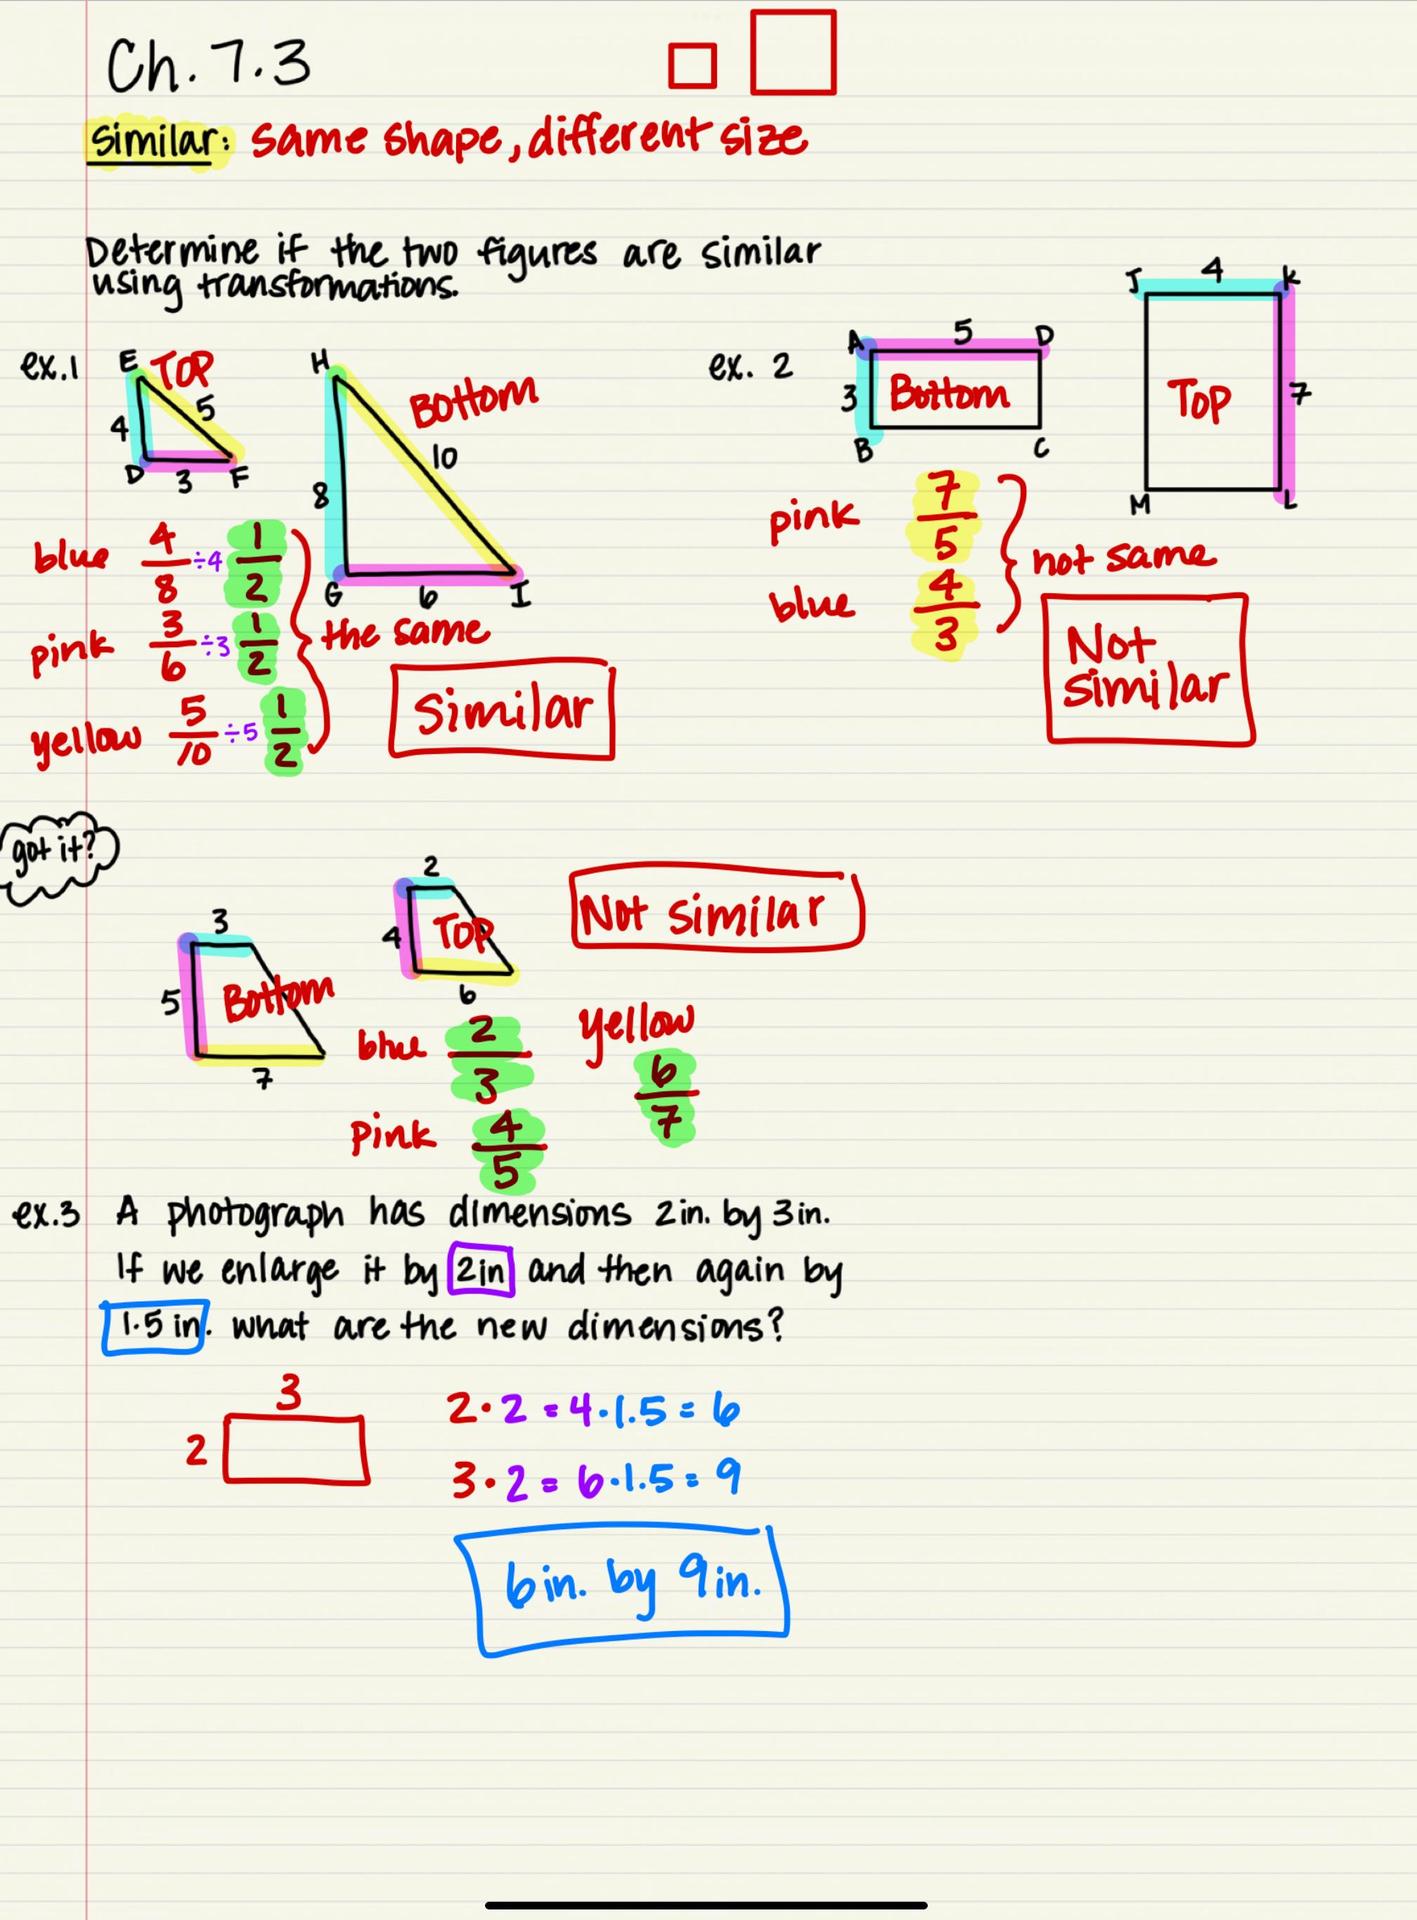 Ch. 7.3
Similar: same shape, different size
Determine if the two figures are similar
using transformations.
ex.1
E
TOP
4
5
D
3
F
H
Bottom
8
10
G
6
I
blue 4/8 ÷4 1/2
pink 3/6 ÷3 1/2
yellow 5/10 ÷5 1/2
the same
Similar
ex. 2
A
5
D
3
Bottom
B
C
J
4
K
Top
7
M
L
pink 7/5
blue 4/3
not same
Not
Similar
got it?
3
5
Bottom
7
2
4
Top
6
Not similar
blue 2/3
pink 4/5
yellow
6/7
ex.3 A photograph has dimensions 2in. by 3in.
If we enlarge it by 2in and then again by
1.5 in. what are the new dimensions?
3
2
2·2=4·1.5=6
3·2=6·1.5=9
6in. by 9in.